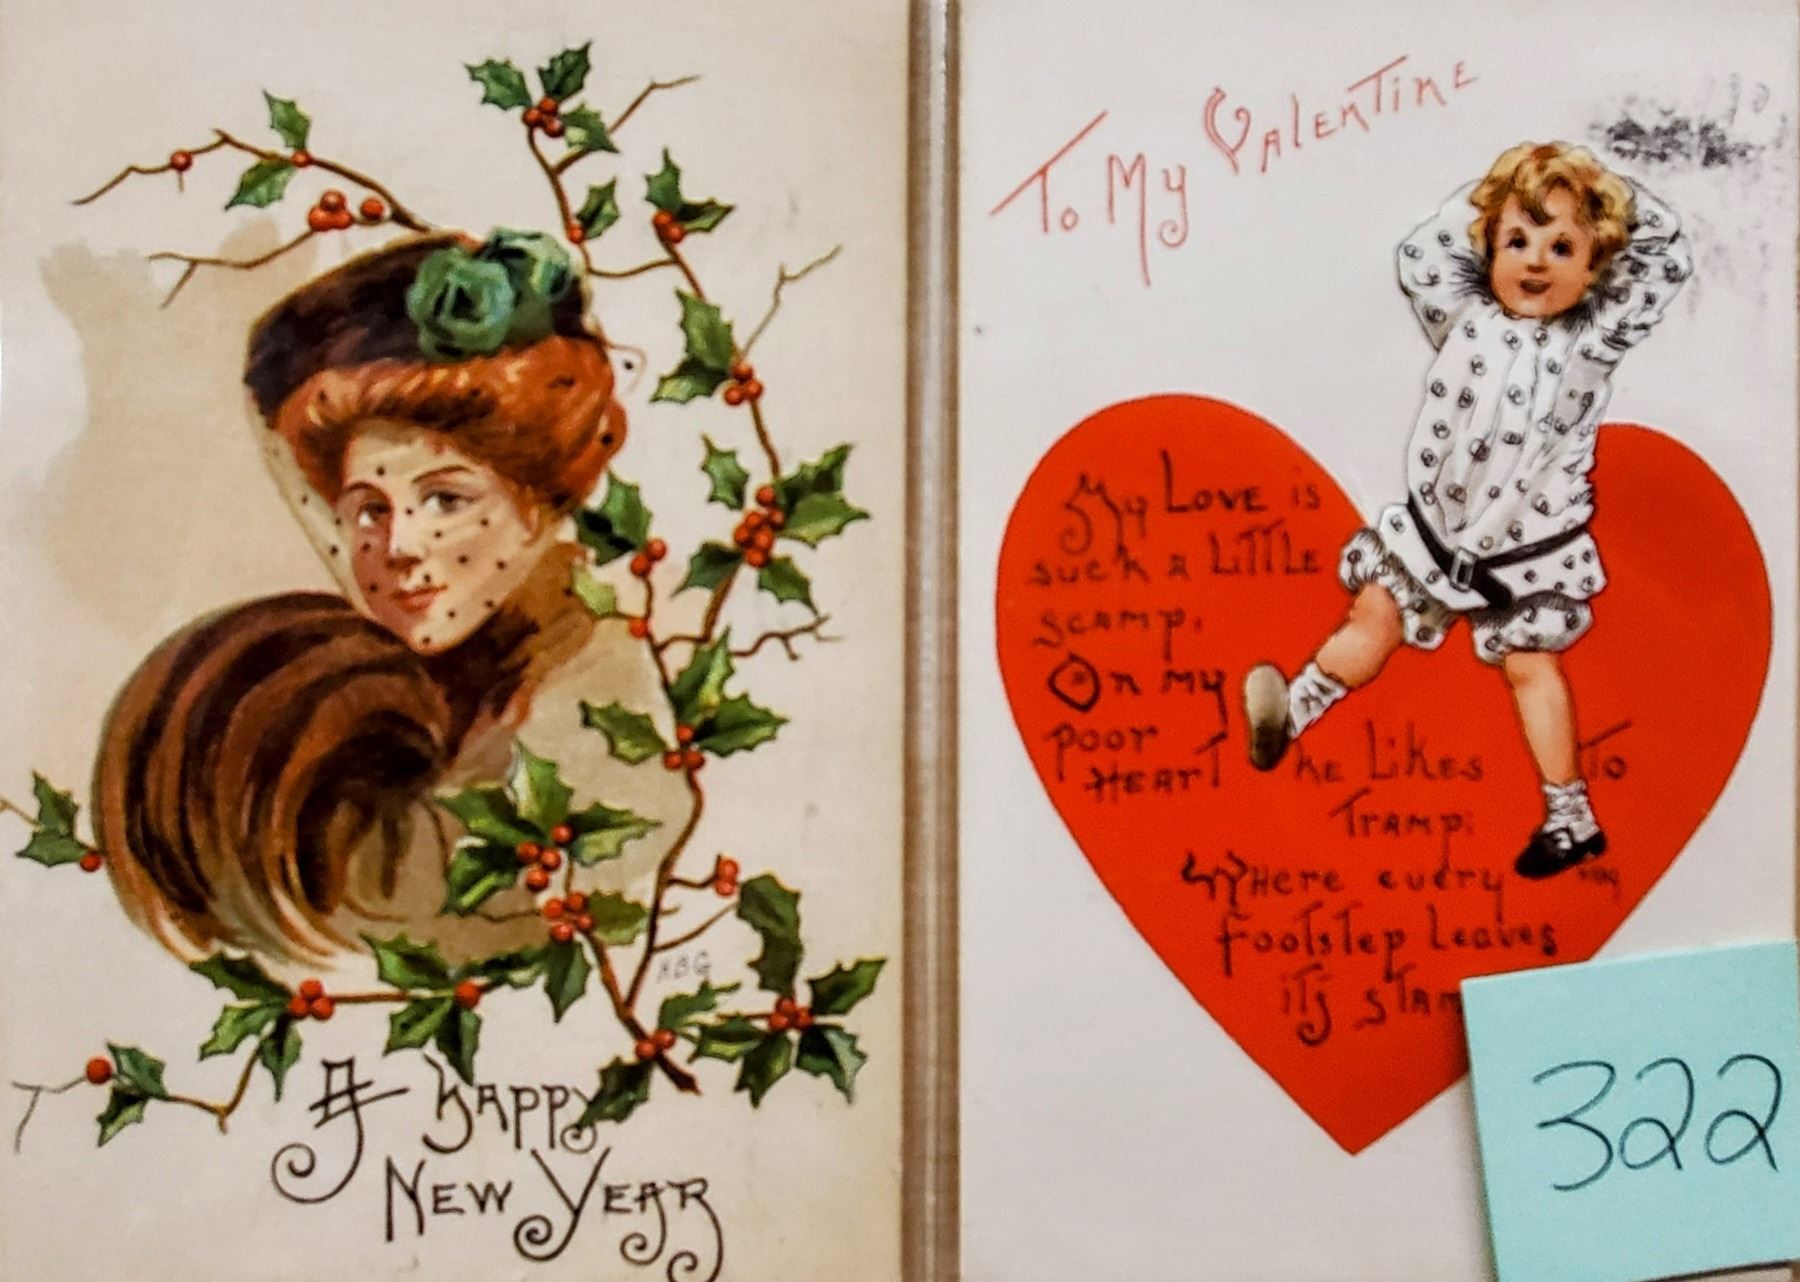 HBG
A Happy
New Year
To My Valentine
My Love is
such a Little
scamp.
On my
poor
Heart he Likes To
Tramp:
Where every
footstep Leaves
its
322